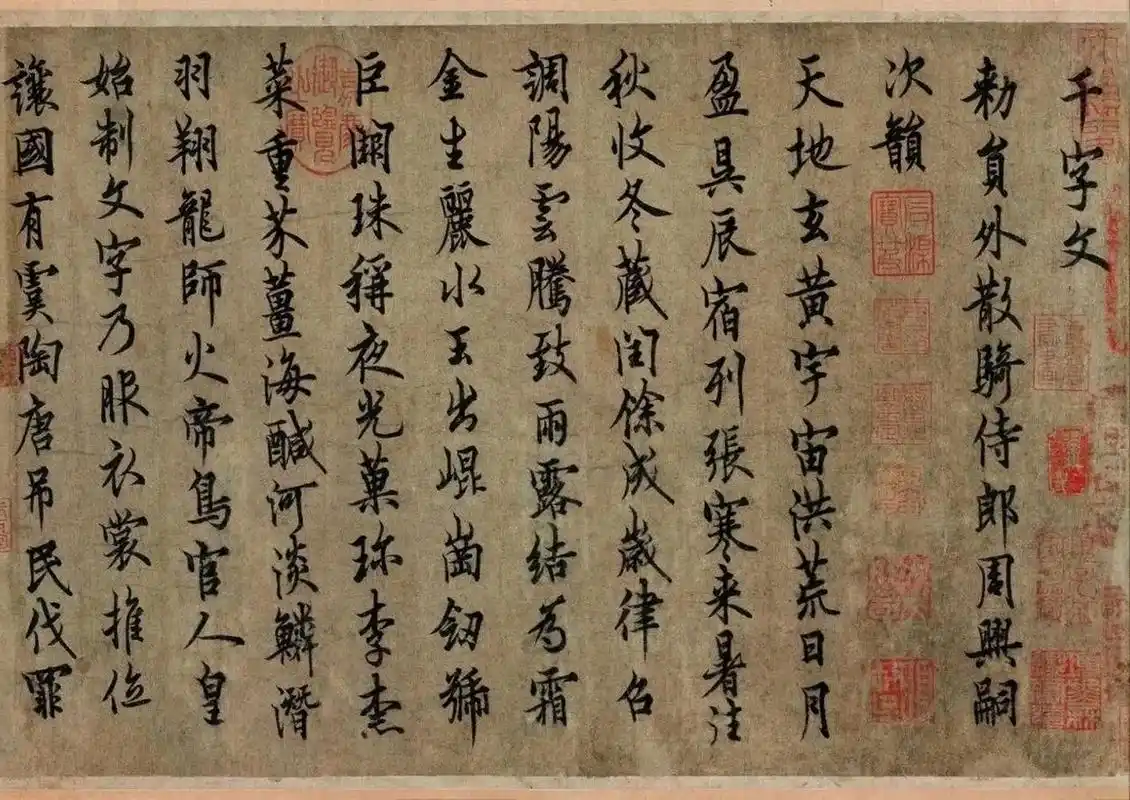 千字文
勑員外散騎侍郎周興嗣
次韻
天地玄黃宇宙洪荒日月
盈昃辰宿列張寒来暑往
秋收冬藏閏餘成歲律召
調陽雲騰致雨露結為霜
金生麗水玉出崐崗劒號
巨闕珠稱夜光菓珎李柰
菜重芥薑海醎河淡鱗潛
羽翔龍師火帝鳥官人皇
始制文字乃服衣裳推位
讓國有虞陶唐吊民伐罪